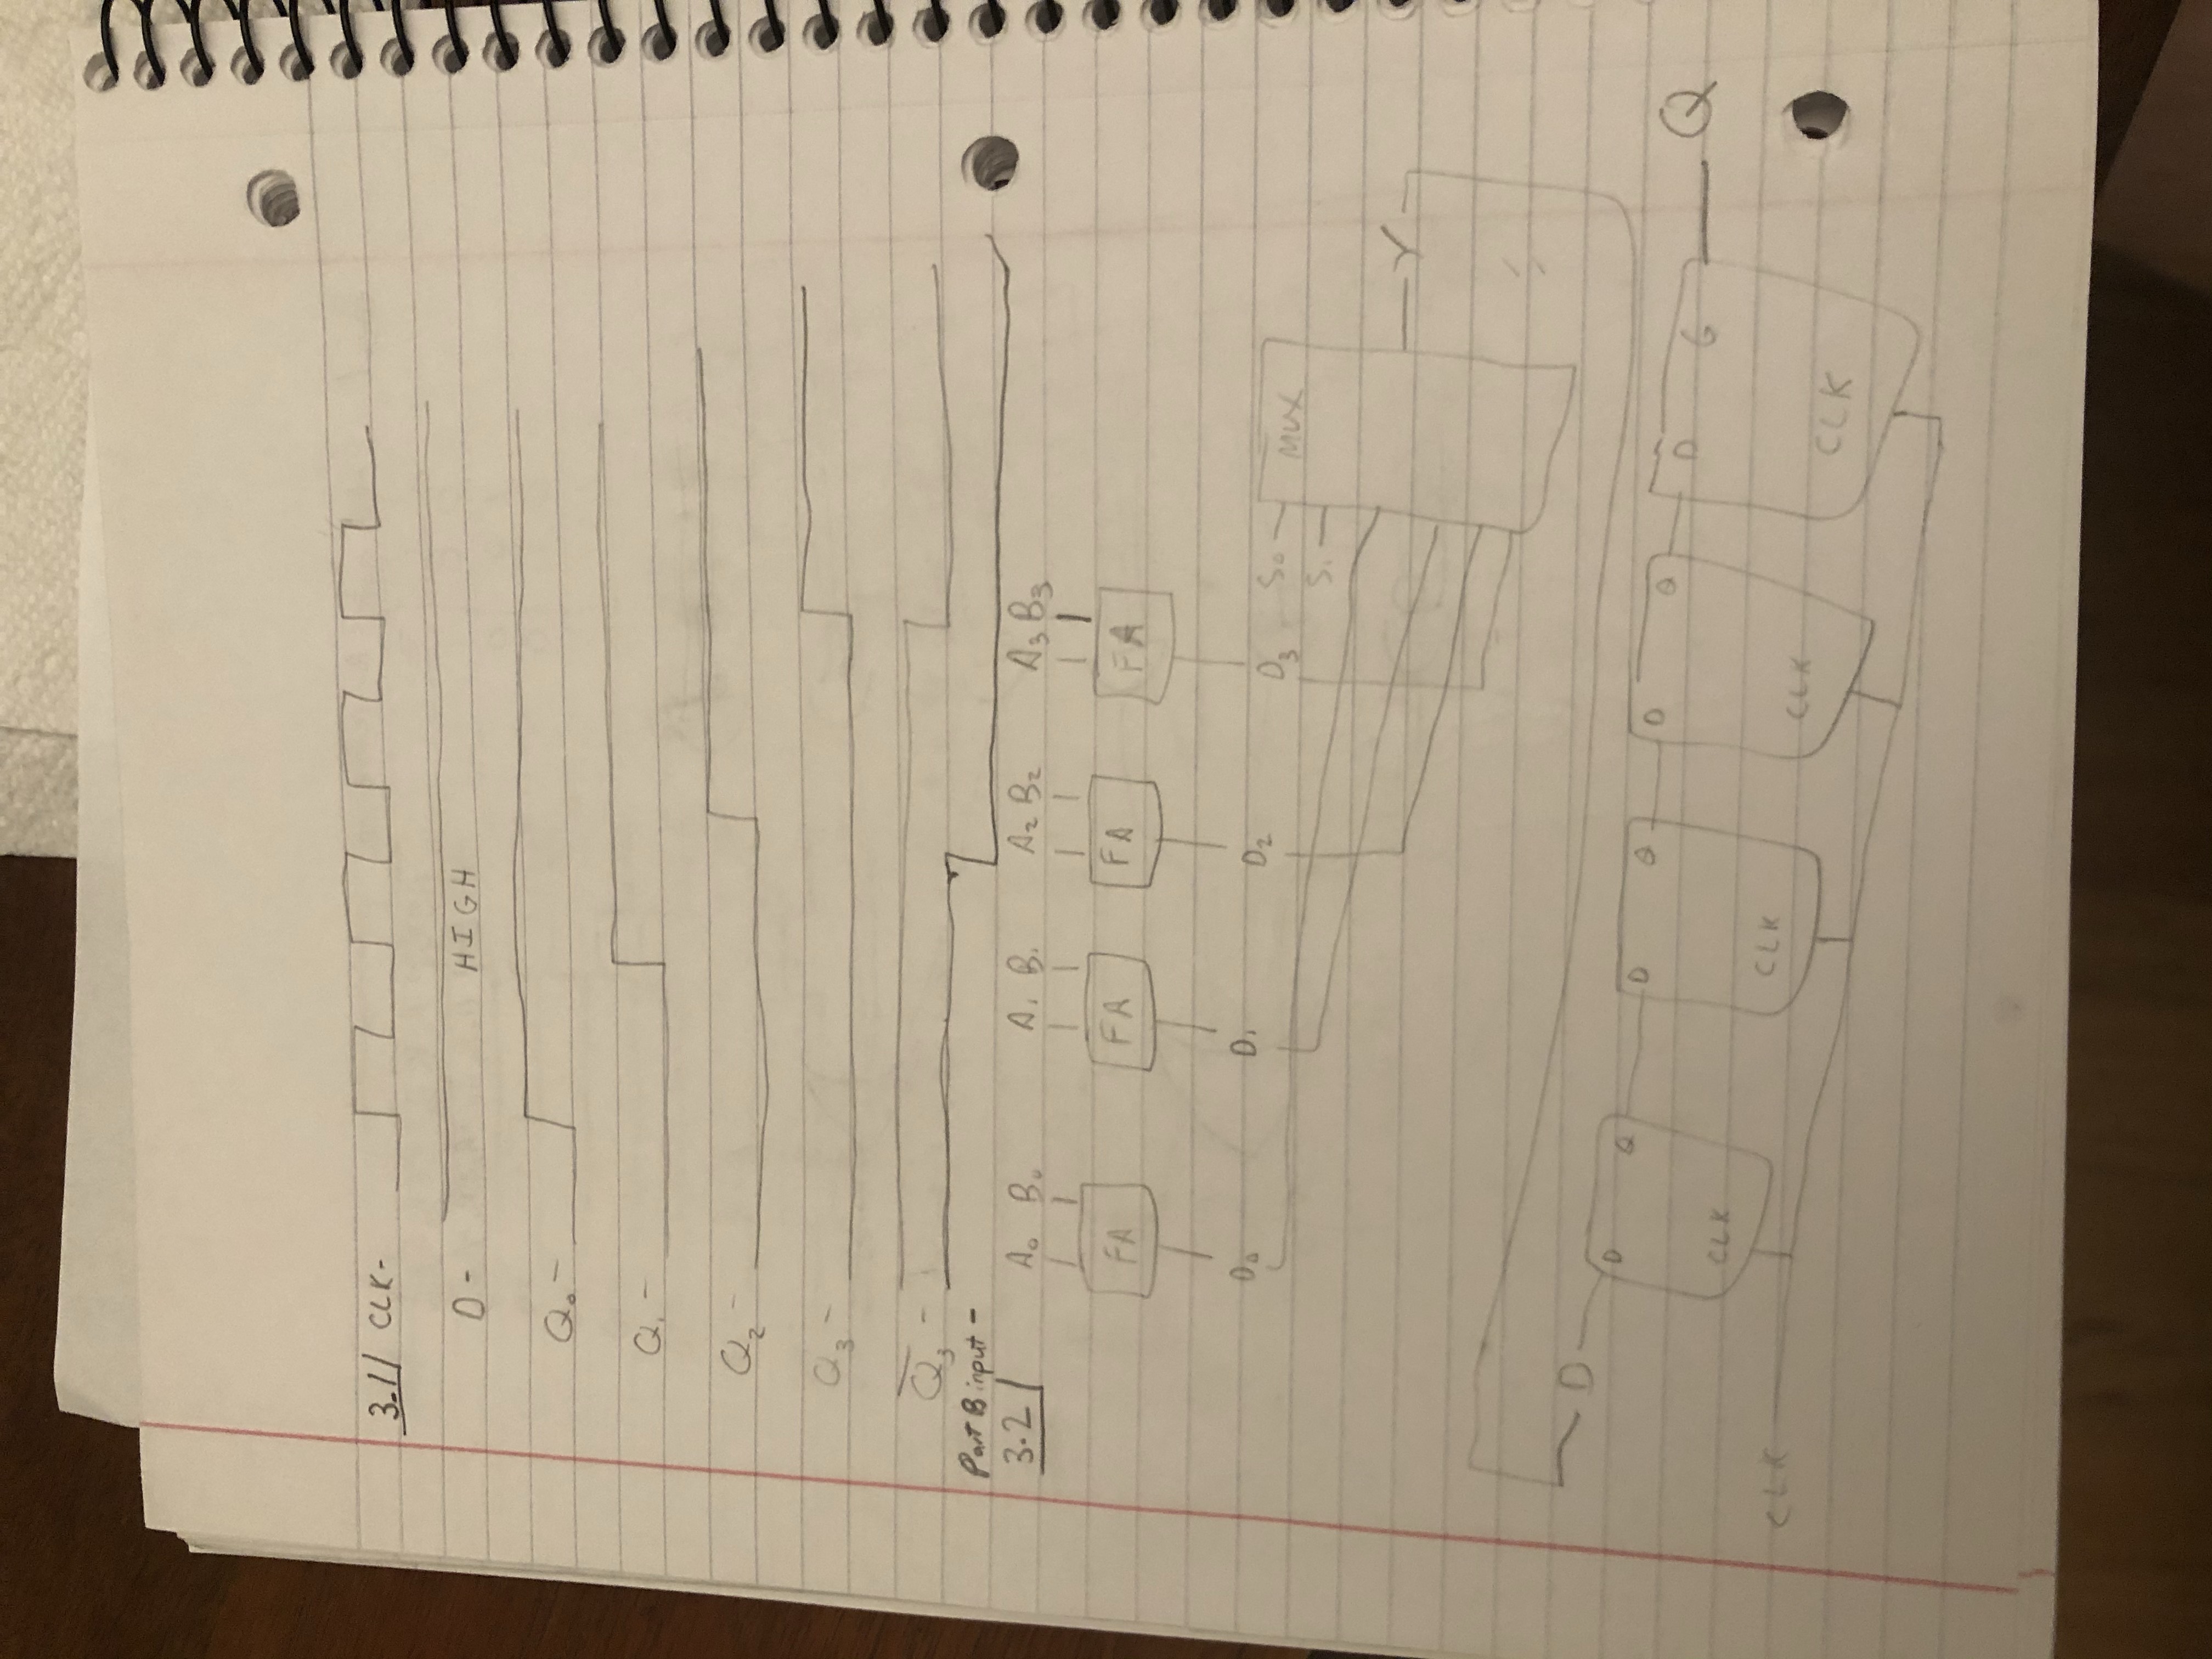 3.1 CLK-
D - HIGH
Q₀ -
Q₁ -
Q₂ -
Q₃ -
Q̅₃ -
Part B input -
3.2
A₀ B₀ A₁ B₁ A₂ B₂ A₃ B₃
FA FA FA FA
D₀ D₁ D₂ D₃
S₀ MUX
S₁
Y
D
D Q D Q D Q D Q Q
CLK CLK CLK CLK
CLK